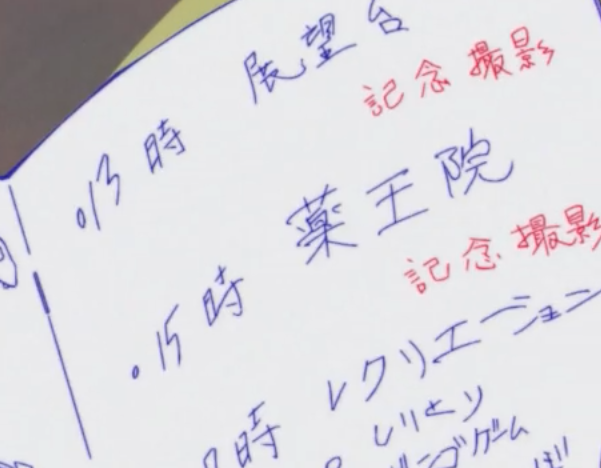 展望台
記念撮影
・13時
薬王院
記念撮影
・15時
レクリエーション
時
しりとり
ビンゴゲーム